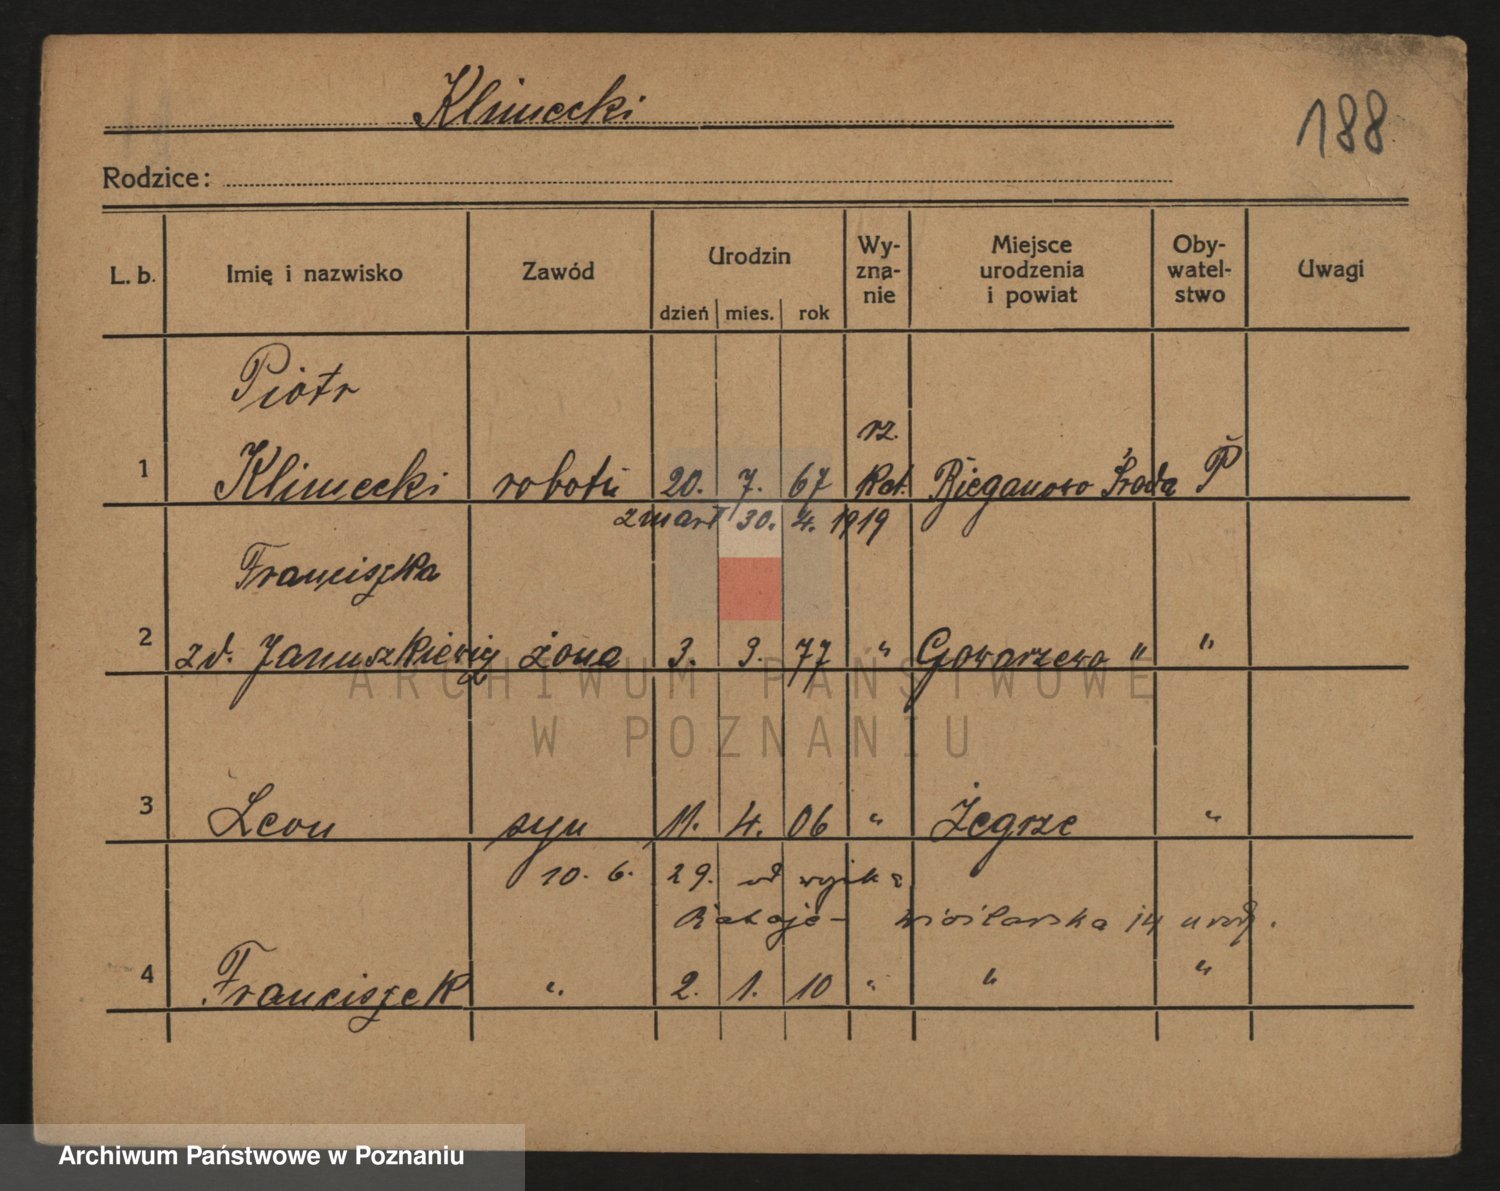 Klimecki
188
Rodzice:
L. b. Imię i nazwisko Zawód Urodzin dzień mies. rok Wy-zna-nie Miejsce urodzenia i powiat Oby-watel-stwo Uwagi
Piotr
rz.
1 Klimecki robotn 20. 7. 67 Kat. Bieganowo Środa P
zmarł 30. 4. 1919
Franciszka
2 zd. Januszkiewicz żona 3. 3. 77 " Gowarzewo " "
ARCHIWUM PAŃSTWOWE
W POZNANIU
3 Leon syn 11. 4. 06 " Żegrze "
10. 6. 29. od
Rataje – wioślarska 14
4 Franciszek " 2. 1. 10 " " "
Archiwum Państwowe w Poznaniu